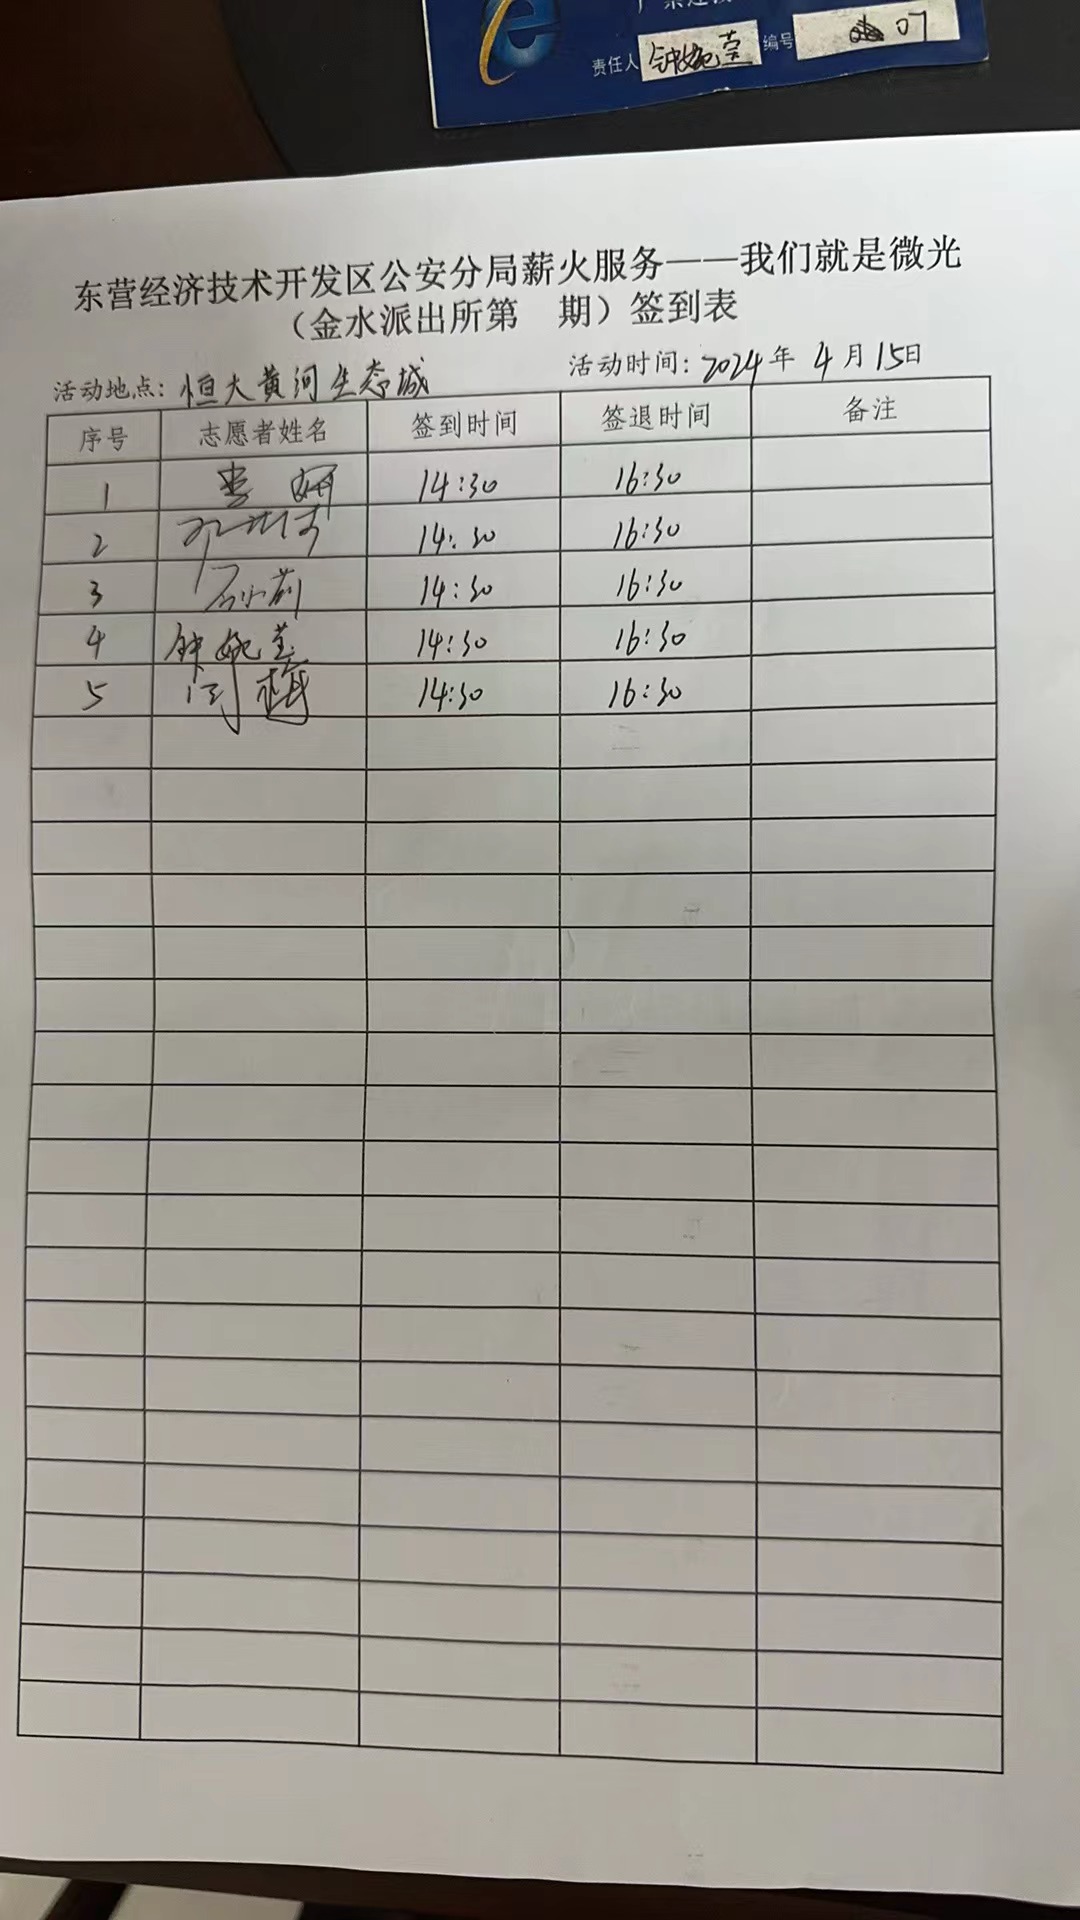 责任人 钟婉莹 编号 07
东营经济技术开发区公安分局薪火服务——我们就是微光
（金水派出所第 期）签到表
活动地点：恒大黄河生态城 活动时间：2024年4月15日
序号 志愿者姓名 签到时间 签退时间 备注
1 李妍 14:30 16:30
2 14:30 16:30
3 石小莉 14:30 16:30
4 钟婉莹 14:30 16:30
5 闫梅 14:30 16:30